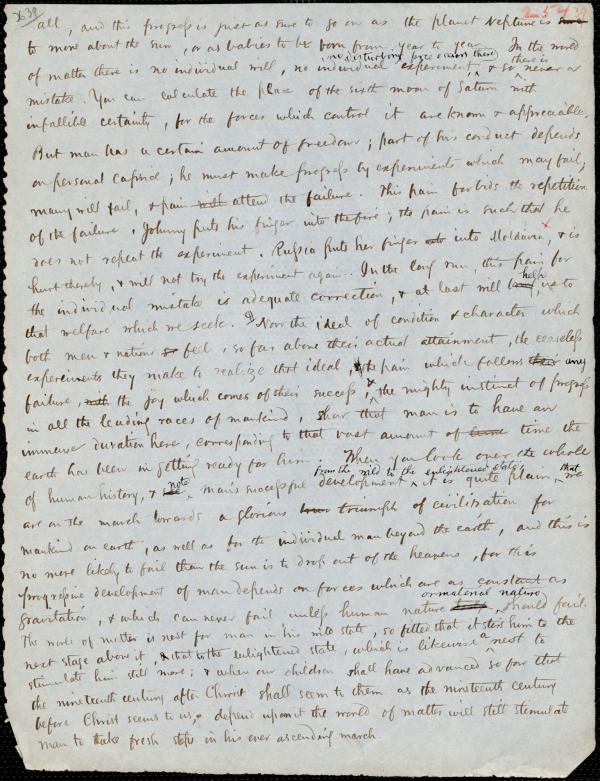 all, and this progress is just as sure to go on as the planet Neptune is
to move about the sun, or as babies to be born from year to year. In the world
no disturbing force occurs there
of matter there is no individual will, no individual experiment, & so there is never a
mistake. You can calculate the place of the sixth moon of Saturn with
infallible certainty, for the forces which control it are known & appreciable.
But man has a certain amount of freedom; part of his conduct depends
on personal caprice; he must make progress by experiments which may fail;
many will fail, & pain will attend the failure. This pain forbids the repetition
of the failure. Johnny puts his finger into the fire; the pain is such that he
does not repeat the experiment. Russia puts her finger into Moldavia, & is
hurt thereby, & will not try the experiment again. In the long run, this pain for
the individual mistake is adequate correction, & at last will help us to
that welfare which we seek. Now the ideal of condition & character which
both men & nations feel, so far above their actual attainment, the ceaseless
experiments they make to realize that ideal, the pain which follows their any
failure, the joy which comes of their success, & the mighty instinct of progress
in all the leading races of mankind, show that man is to have an
immense duration here, corresponding to that vast amount of time the
earth has been in getting ready for him. When you look over the whole
from the wild to the enlightened state,
of human history, & note man's successful development, it is quite plain that we
are on the march towards a glorious triumph of civilization for
mankind on earth, as well as for the individual man beyond the earth, and this is
no more likely to fail than the sun is to drop out of the heavens, for this
progressive development of man depends on forces which are as constant as
gravitation, & which can never fail unless human nature or material nature should fail.
The world of matter is nest for man in his wild state, so fitted that it stirs him to the
next stage above it, & that to the enlightened state, which is likewise a nest to
stimulate him still more; & when our children shall have advanced so far that
the nineteenth century after Christ shall seem to them as the nineteenth century
before Christ seems to us, depend upon it the world of matter will still stimulate
man to take fresh steps in his ever ascending march.